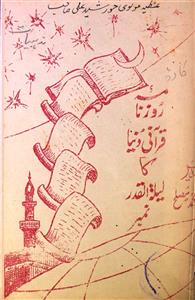 عطیہ مولوی خورشید علی صاحب
روزنامہ
قرآنی دنیا
کا
لیلۃ القدر
نمبر